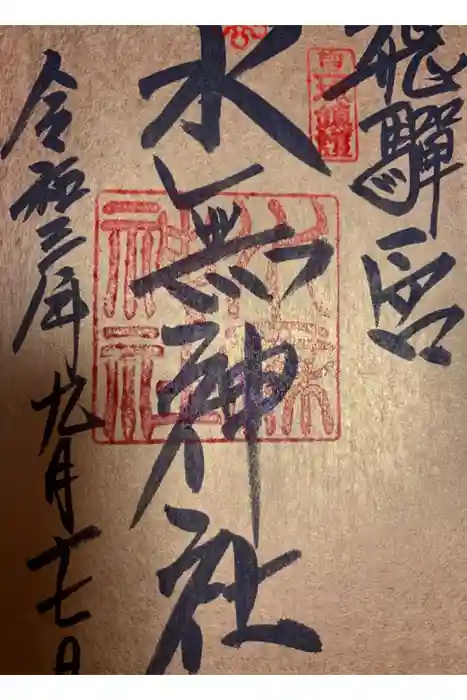 飛驒一宮
水無神社
令和三年九月十七日